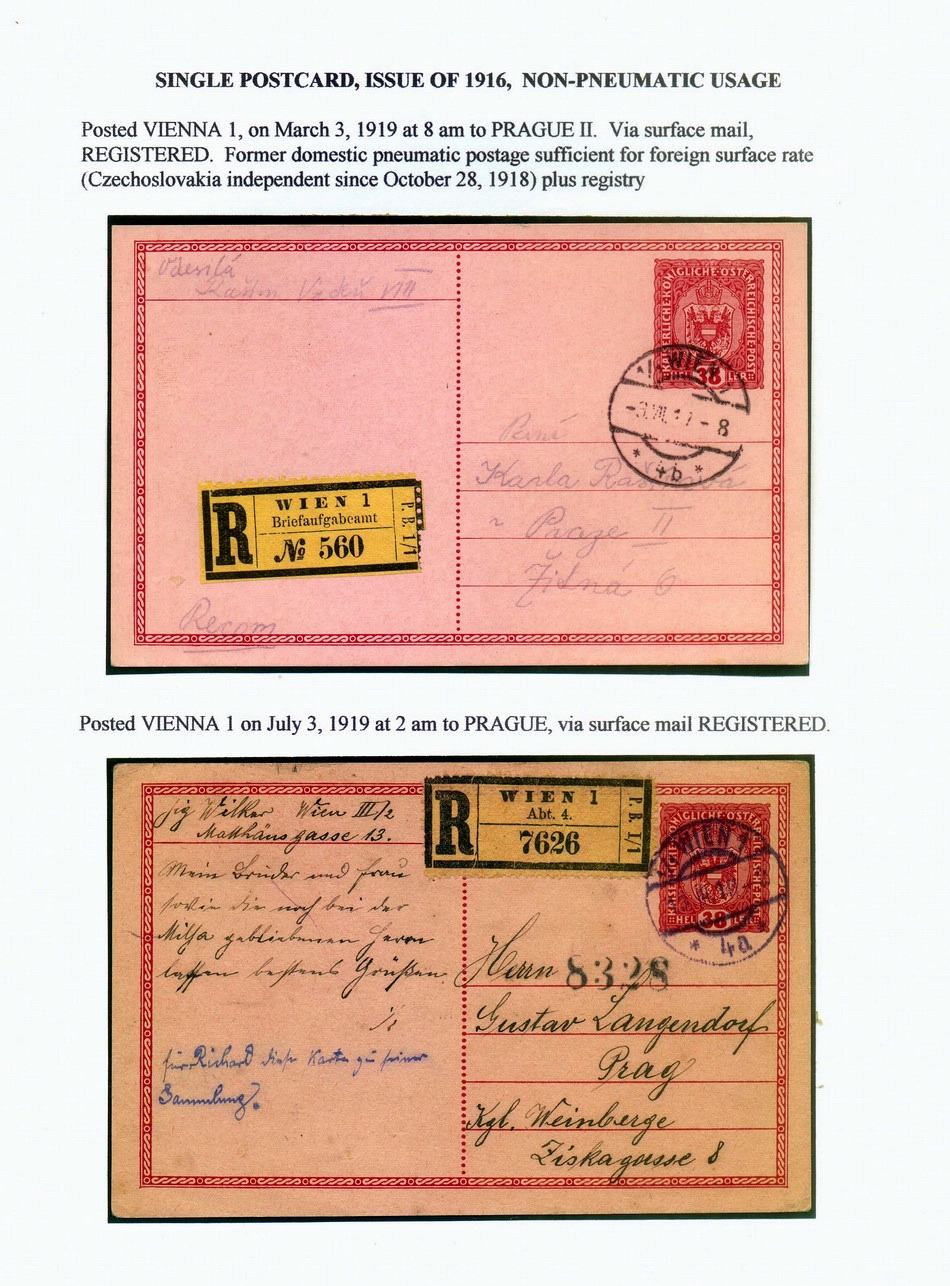 SINGLE POSTCARD, ISSUE OF 1916, NON-PNEUMATIC USAGE
Posted VIENNA 1, on March 3, 1919 at 8 am to PRAGUE II. Via surface mail,
REGISTERED. Former domestic pneumatic postage sufficient for foreign surface rate
(Czechoslovakia independent since October 28, 1918) plus registry
Odesílá
VIII
KAISERLICHE KÖNIGLICHE ÖSTERREICHISCHE POST
38
WIEN 1
8
* 4b *
Karla
v Praze II
Žitná 6
R
WIEN 1
Briefaufgabeamt
№ 560
P. B. 1/1
Recom
Posted VIENNA 1 on July 3, 1919 at 2 am to PRAGUE, via surface mail REGISTERED.
Wilker Wien III/2
Matthäusgasse 13.
Mein Bruder und Frau
sowie die noch bei der
gebliebenen Herrn
lassen bestens Grüßen.
für Richard diese Karte zu seiner
Sammlung.
R
WIEN 1
Abt. 4.
7626
P. B. 1/1
HELLER 38
WIEN 1
* 4a
Herrn
8328
Gustav Langendorf
Prag
Kgl. Weinberge
Ziskagasse 8